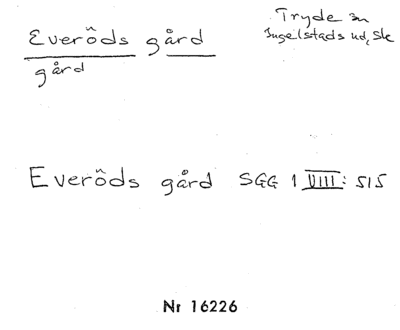 Tryde sn
Ingelstads hd, Sk
Everöds gård
gård
Everöds gård SGG 1 VIII: 515
Nr 16226